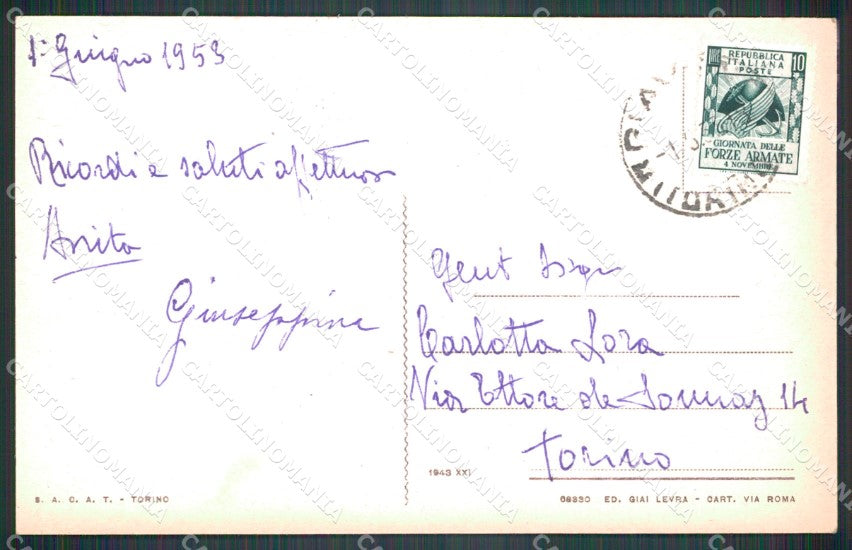 1° Giugno 1953
Ricordi e saluti affettuosi
Anita
Giuseppina
REPUBBLICA
ITALIANA
POSTE
10
GIORNATA DELLE
FORZE ARMATE
4 NOVEMBRE
Gent Sigra
Carlotta Lora
Via Ettore de Sonnaz 14
Torino
1943 XXI
S. A. C. A. T. - TORINO
68330 ED. GIAI LEVRA - CART. VIA ROMA
CARTOLINOMANIA